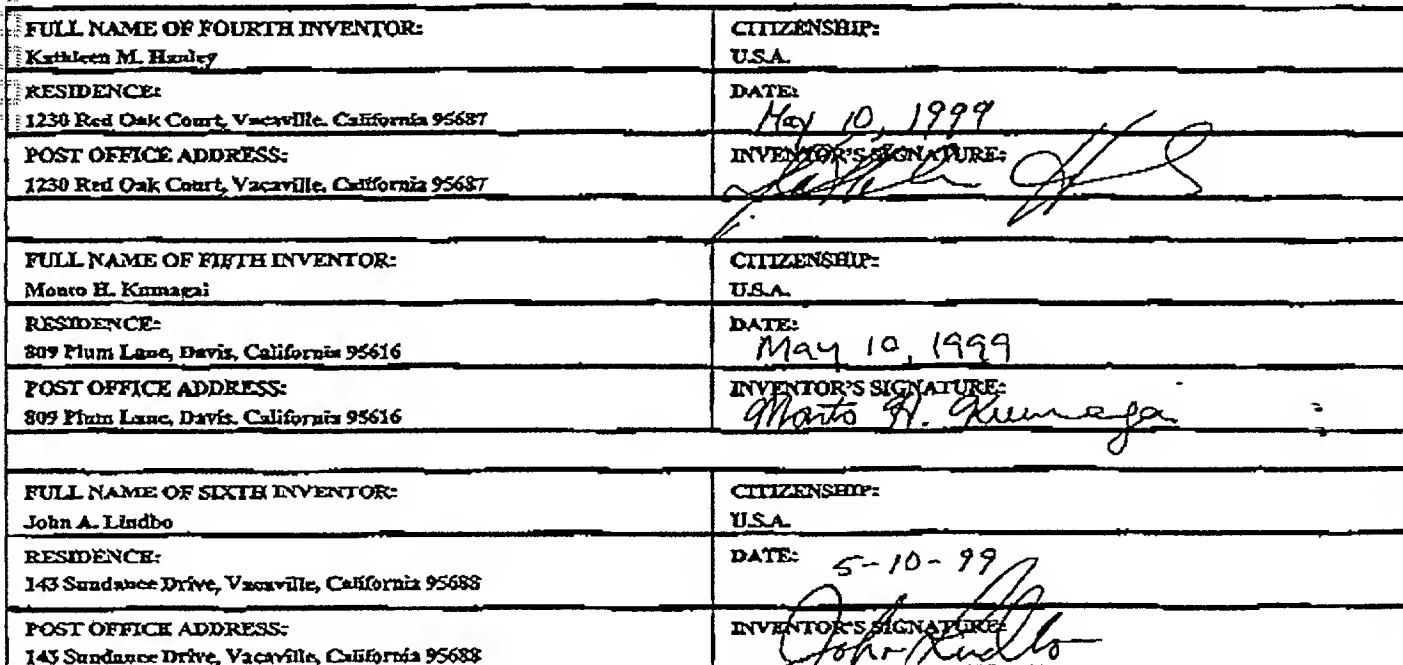 FULL NAME OF FOURTH INVENTOR:
Kathleen M. Hanley
CITIZENSHIP:
U.S.A.
RESIDENCE:
1230 Red Oak Court, Vacaville, California 95687
DATE:
May 10, 1999
POST OFFICE ADDRESS:
1230 Red Oak Court, Vacaville, California 95687
INVENTOR'S SIGNATURE:
FULL NAME OF FIFTH INVENTOR:
Monto H. Kumagai
CITIZENSHIP:
U.S.A.
RESIDENCE:
809 Plum Lane, Davis, California 95616
DATE:
May 10, 1999
POST OFFICE ADDRESS:
809 Plum Lane, Davis, California 95616
INVENTOR'S SIGNATURE:
Monto H. Kumagai
FULL NAME OF SIXTH INVENTOR:
John A. Lindbo
CITIZENSHIP:
U.S.A.
RESIDENCE:
143 Sundance Drive, Vacaville, California 95688
DATE: 5-10-99
POST OFFICE ADDRESS:
143 Sundance Drive, Vacaville, California 95688
INVENTOR'S SIGNATURE:
John Lindbo